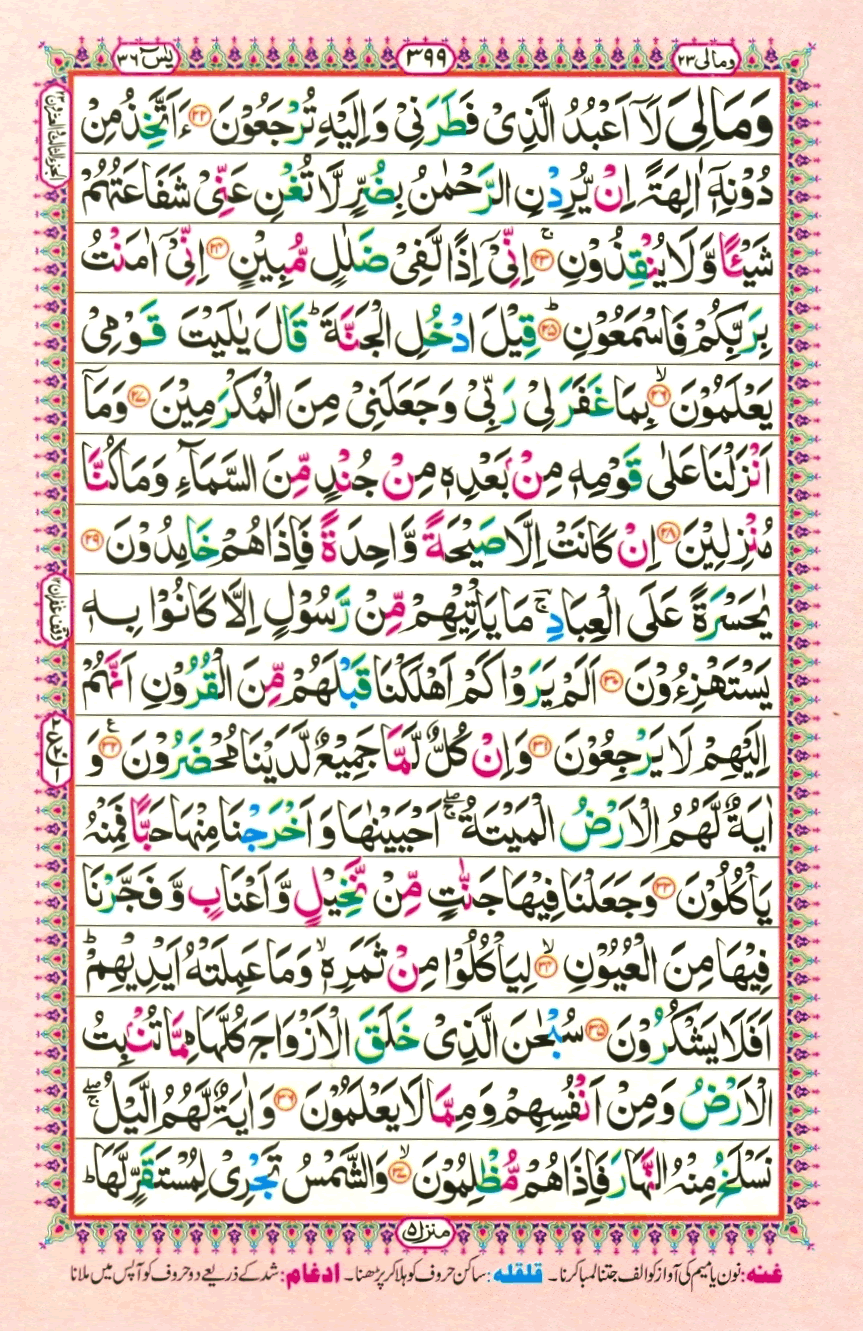 ومالی ۲۳
۳۹۹
یٰسٓ ۳۶
وَمَا لِیَ لَاۤ اَعْبُدُ الَّذِیْ فَطَرَنِیْ وَاِلَیْهِ تُرْجَعُوْنَ ﴿۲۲﴾ ءَاَتَّخِذُ مِنْ
دُوْنِهٖۤ اٰلِهَةً اِنْ یُّرِدْنِ الرَّحْمٰنُ بِضُرٍّ لَّا تُغْنِ عَنِّیْ شَفَاعَتُهُمْ
شَیْـًٔا وَّلَا یُنْقِذُوْنِ ﴿۲۳﴾ۚ اِنِّیْۤ اِذًا لَّفِیْ ضَلٰلٍ مُّبِیْنٍ ﴿۲۴﴾ اِنِّیْۤ اٰمَنْتُ
بِرَبِّكُمْ فَاسْمَعُوْنِ ﴿۲۵﴾ؕ قِیْلَ ادْخُلِ الْجَنَّةَ ؕ قَالَ یٰلَیْتَ قَوْمِیْ
یَعْلَمُوْنَ ﴿۲۶﴾ۙ بِمَا غَفَرَ لِیْ رَبِّیْ وَجَعَلَنِیْ مِنَ الْمُكْرَمِیْنَ ﴿۲۷﴾ وَمَاۤ
اَنْزَلْنَا عَلٰی قَوْمِهٖ مِنْۢ بَعْدِهٖ مِنْ جُنْدٍ مِّنَ السَّمَآءِ وَمَا كُنَّا
مُنْزِلِیْنَ ﴿۲۸﴾ اِنْ كَانَتْ اِلَّا صَیْحَةً وَّاحِدَةً فَاِذَا هُمْ خَامِدُوْنَ ﴿۲۹﴾
یٰحَسْرَةً عَلَی الْعِبَادِ ۚ مَا یَاْتِیْهِمْ مِّنْ رَّسُوْلٍ اِلَّا كَانُوْا بِهٖ
یَسْتَهْزِءُوْنَ ﴿۳۰﴾ اَلَمْ یَرَوْا كَمْ اَهْلَكْنَا قَبْلَهُمْ مِّنَ الْقُرُوْنِ اَنَّهُمْ
اِلَیْهِمْ لَا یَرْجِعُوْنَ ﴿۳۱﴾ وَاِنْ كُلٌّ لَّمَّا جَمِیْعٌ لَّدَیْنَا مُحْضَرُوْنَ ﴿۳۲﴾ع وَ
اٰیَةٌ لَّهُمُ الْاَرْضُ الْمَیْتَةُ ۖۚ اَحْیَیْنٰهَا وَاَخْرَجْنَا مِنْهَا حَبًّا فَمِنْهُ
یَاْكُلُوْنَ ﴿۳۳﴾ وَجَعَلْنَا فِیْهَا جَنّٰتٍ مِّنْ نَّخِیْلٍ وَّاَعْنَابٍ وَّفَجَّرْنَا
فِیْهَا مِنَ الْعُیُوْنِ ﴿۳۴﴾ۙ لِیَاْكُلُوْا مِنْ ثَمَرِهٖ ۙ وَمَا عَمِلَتْهُ اَیْدِیْهِمْ ؕ
اَفَلَا یَشْكُرُوْنَ ﴿۳۵﴾ سُبْحٰنَ الَّذِیْ خَلَقَ الْاَزْوَاجَ كُلَّهَا مِمَّا تُنْۢبِتُ
الْاَرْضُ وَمِنْ اَنْفُسِهِمْ وَمِمَّا لَا یَعْلَمُوْنَ ﴿۳۶﴾ وَاٰیَةٌ لَّهُمُ الَّیْلُ ۖۚ
نَسْلَخُ مِنْهُ النَّهَارَ فَاِذَا هُمْ مُّظْلِمُوْنَ ﴿۳۷﴾ۙ وَالشَّمْسُ تَجْرِیْ لِمُسْتَقَرٍّ لَّهَا ؕ
الجزء الثالث والعشرون ۲۳
وقف غفران
منزل ۵
غنه: نون یا میم کی آواز کو الف جتنا لمبا کرنا۔ قلقله: ساکن حروف کو ہلا کر پڑھنا۔ ادغام: شد کے ذریعے دو حروف کو آپس میں ملانا